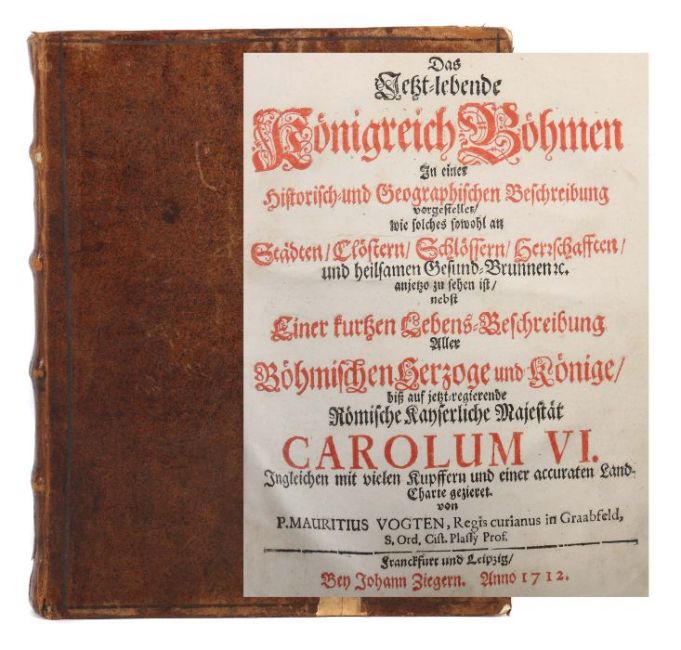 Das
Jetzt-lebende
Königreich Böhmen
In einer
Historisch-und Geographischen Beschreibung
vorgestellet/
wie solches sowohl an
Städten/ Clöstern/ Schlössern/ Herrschafften/
und heilsamen Gesund-Brunnen ꝛc.
anjetzo zu sehen ist/
nebst
Einer kurtzen Lebens-Beschreibung
Aller
Böhmischen Herzoge und Könige/
biß auf jetzt-regierende
Römische Kayserliche Majestät
CAROLUM VI.
Ingleichen mit vielen Kupffern und einer accuraten Land-
Charte gezieret.
von
P. MAURITIUS VOGTEN, Regis curianus in Graabfeld,
S. Ord. Cist. Plassy Prof.
Franckfurt und Leipzig/
Bey Johann Ziegern. Anno 1712.